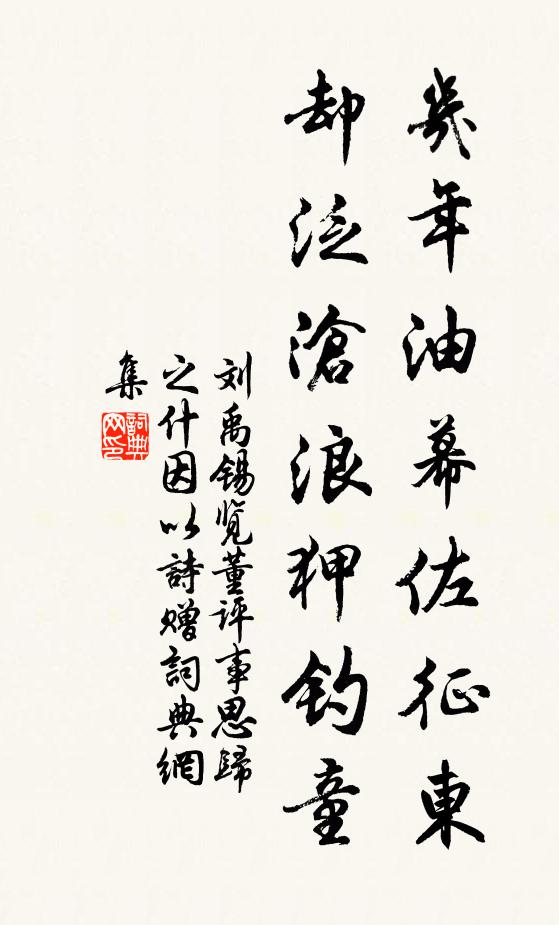 幾年油幕佐征東
却泛滄浪狎钓童
刘禹锡览董评事思歸
之什因以詩赠詞典網
集
詞典
网印